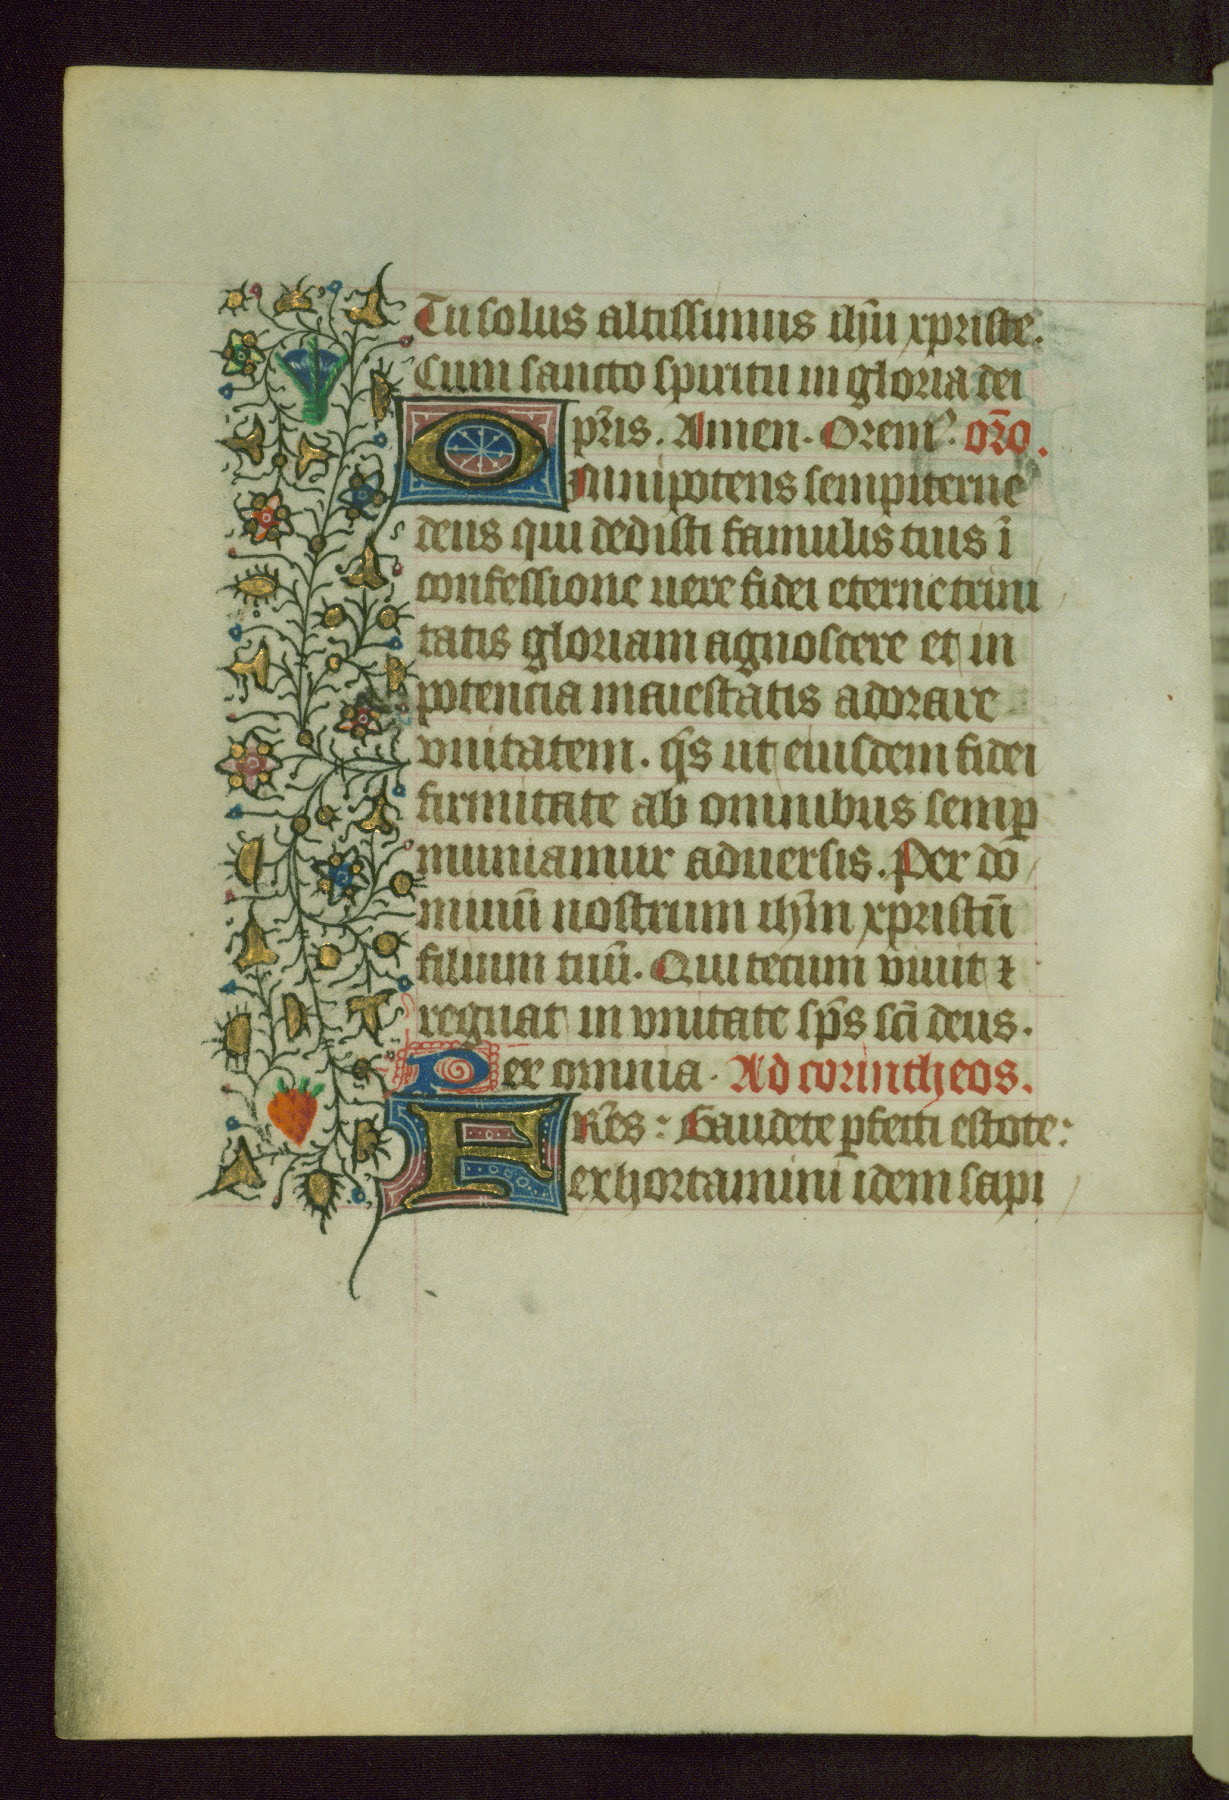 Tu solus altissimus ihũ xpriste.
Cum sancto spiritu in gloria dei
pr̃is. Amen. Oremꝰ. or̃o.
Omnipotens sempiterne
deus qui dedisti famulis tuis ĩ
confessione uere fidei eterne trini
tatis gloriam agnoscere et in
potencia maiestatis adorare
vnitatem. q̃s ut eiusdem fidei
firmitate ab omnibus semp̱
muniamur aduersis. Per dõ
minũ nostrum ihm̃ xpristũ
filium tuũ. Qui tecum viuit ⁊
regnat in vnitate sp̃s scĩ deus.
Per omnia. Ad corintheos.
FRẽs: Gaudete ꝑfecti estote:
exhortamini idem sapi